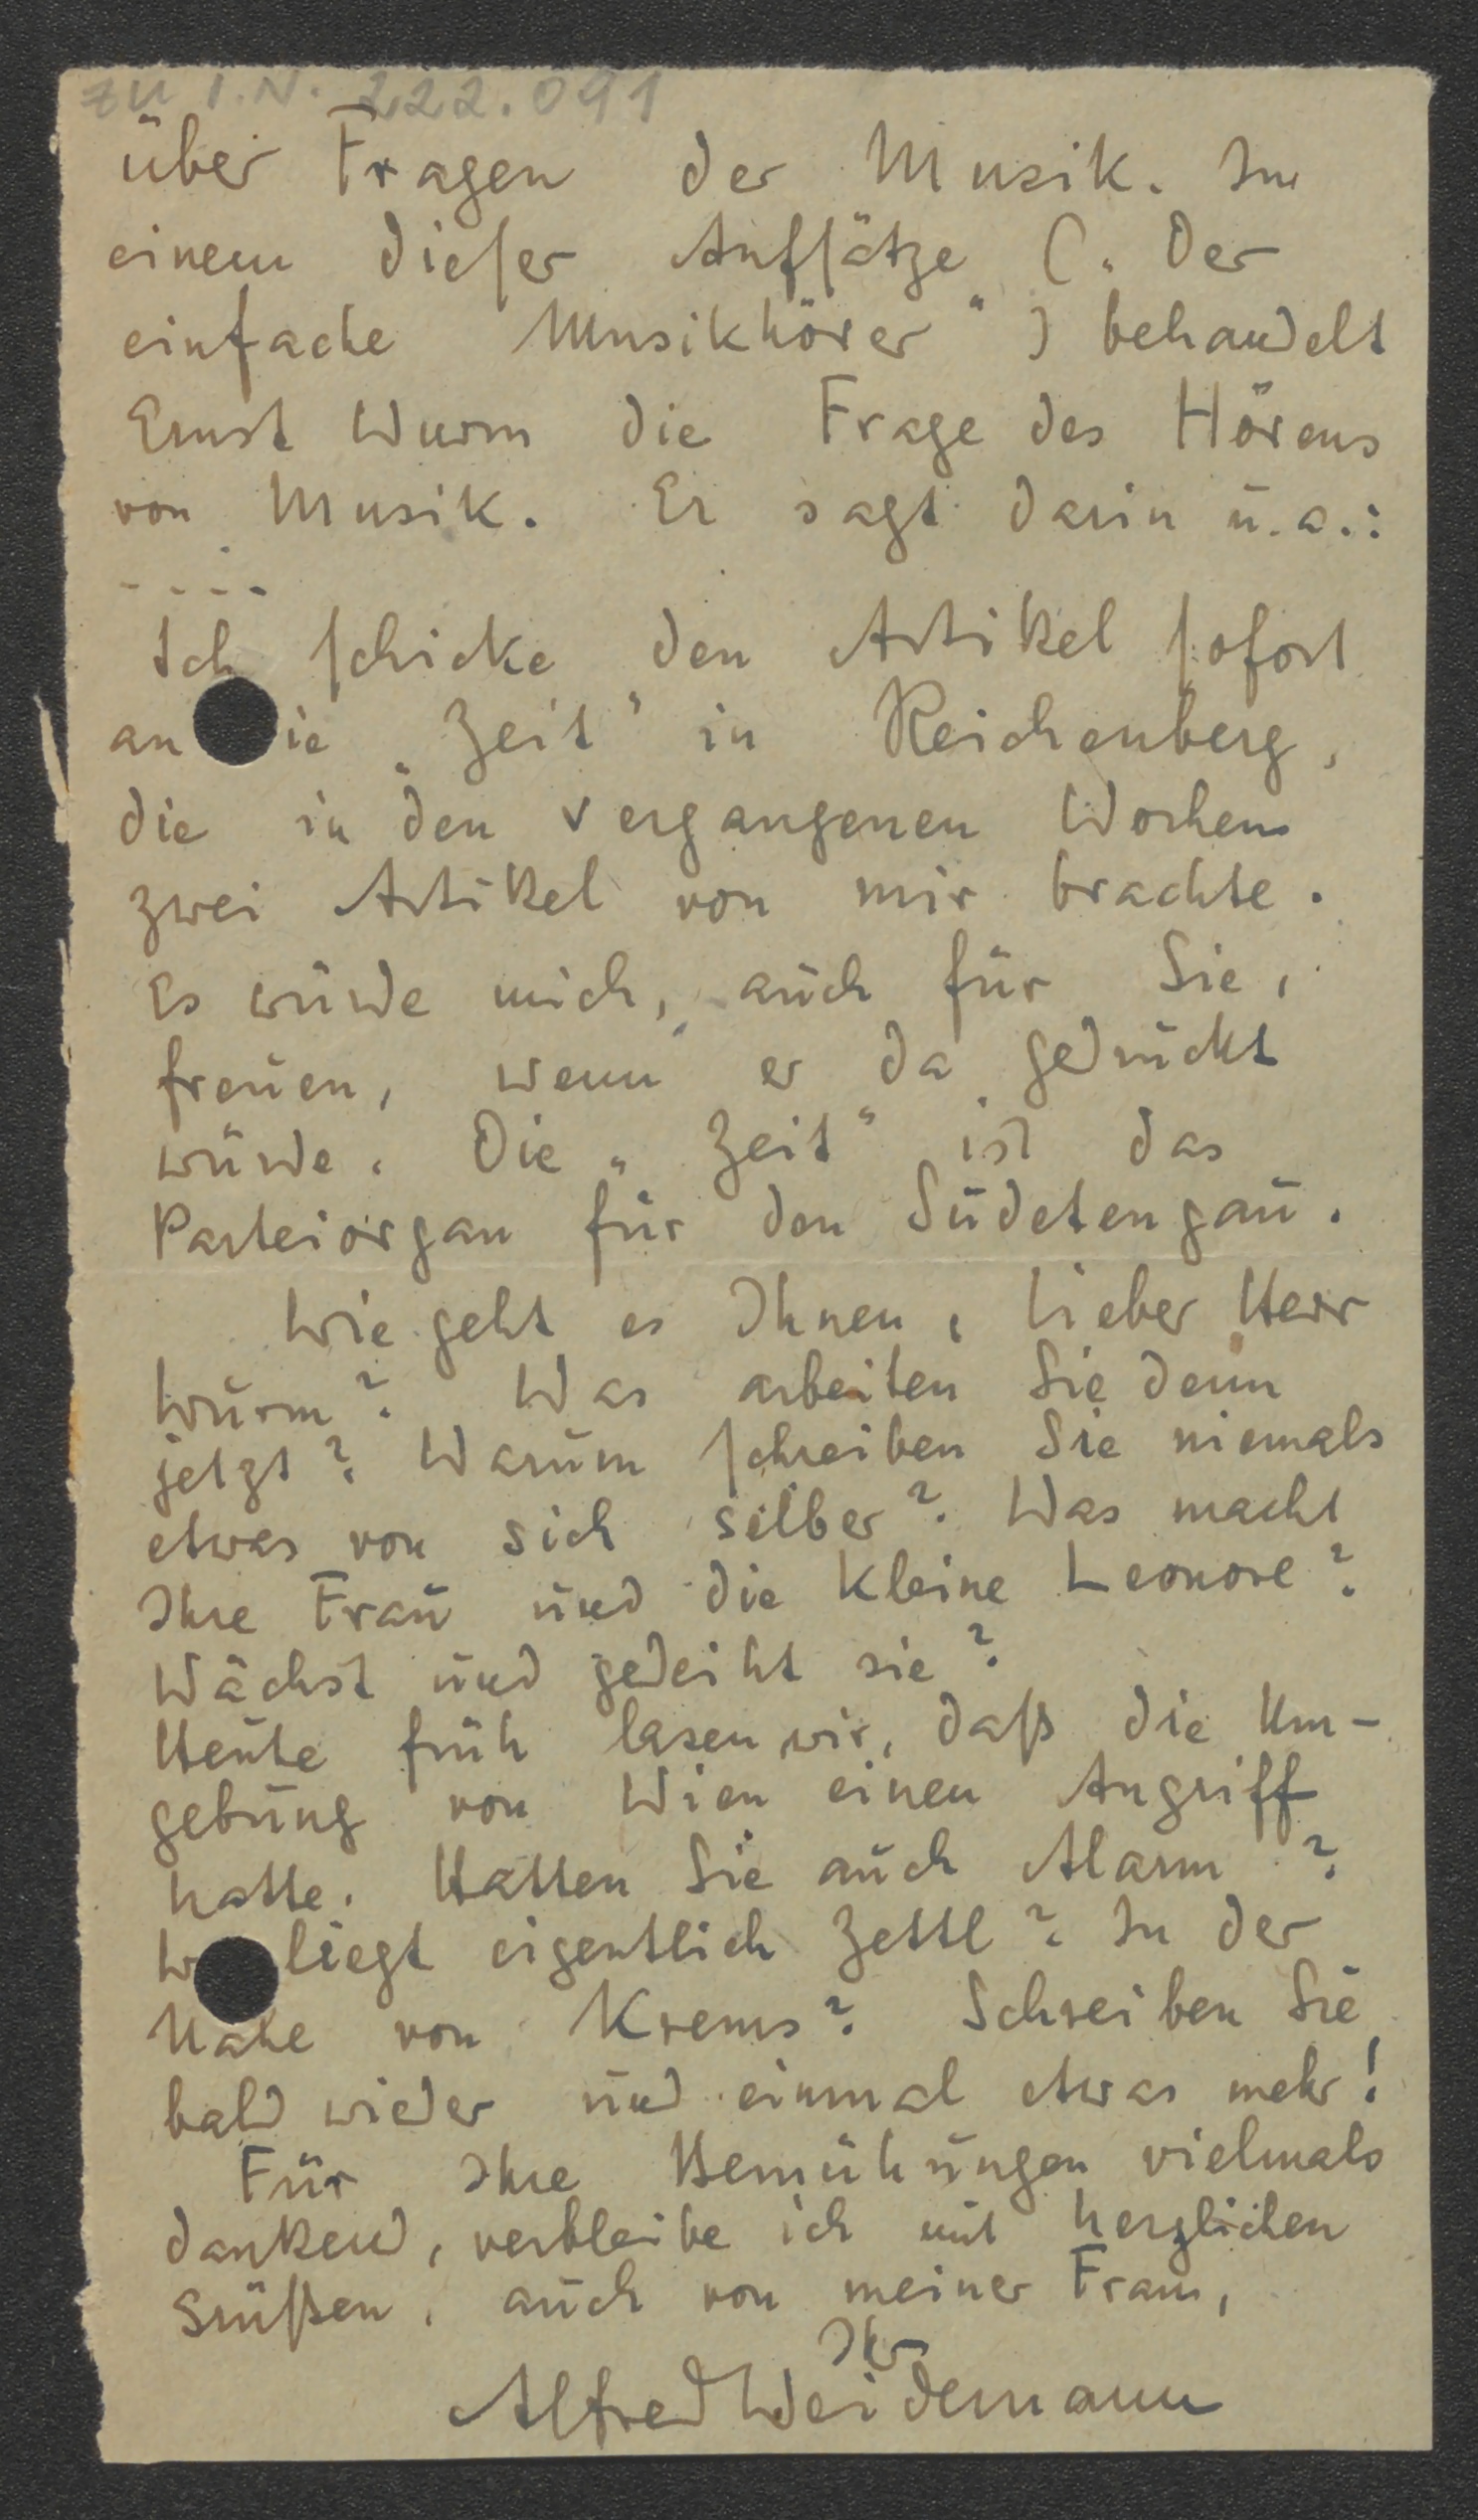 zu I.N. 222.091
über Fragen der Musik. In
einem dieser Aufsätze („Der
einfache Musikhörer") behandelt
Ernst Wurm die Frage des Hörens
von Musik. Er sagt darin u.a.:
.....
Ich schicke den Artikel sofort
an die „Zeit" in Reichenberg,
die in den vergangenen Wochen
zwei Artikel von mir brachte.
Es würde mich, auch für Sie,
freuen, wenn er da gedruckt
würde. Die „Zeit" ist das
Parteiorgan für den Sudetengau.
Wie geht es Ihnen, lieber Herr
Wurm? Was arbeiten Sie denn
jetzt? Warum schreiben Sie niemals
etwas von sich selber? Was macht
Ihre Frau und die kleine Leonore?
Wächst und gedeiht sie?
Heute früh lasen wir, daß die Um-
gebung von Wien einen Angriff
hatte. Hatten Sie auch Alarm?
Wo liegt eigentlich Zettl? In der
Nähe von Krems? Schreiben Sie
bald wieder und einmal etwas mehr!
Für Ihre Bemühungen vielmals
dankend, verbleibe ich mit herzlichen
Grüßen, auch von meiner Frau,
Ihr
Alfred Weidemann